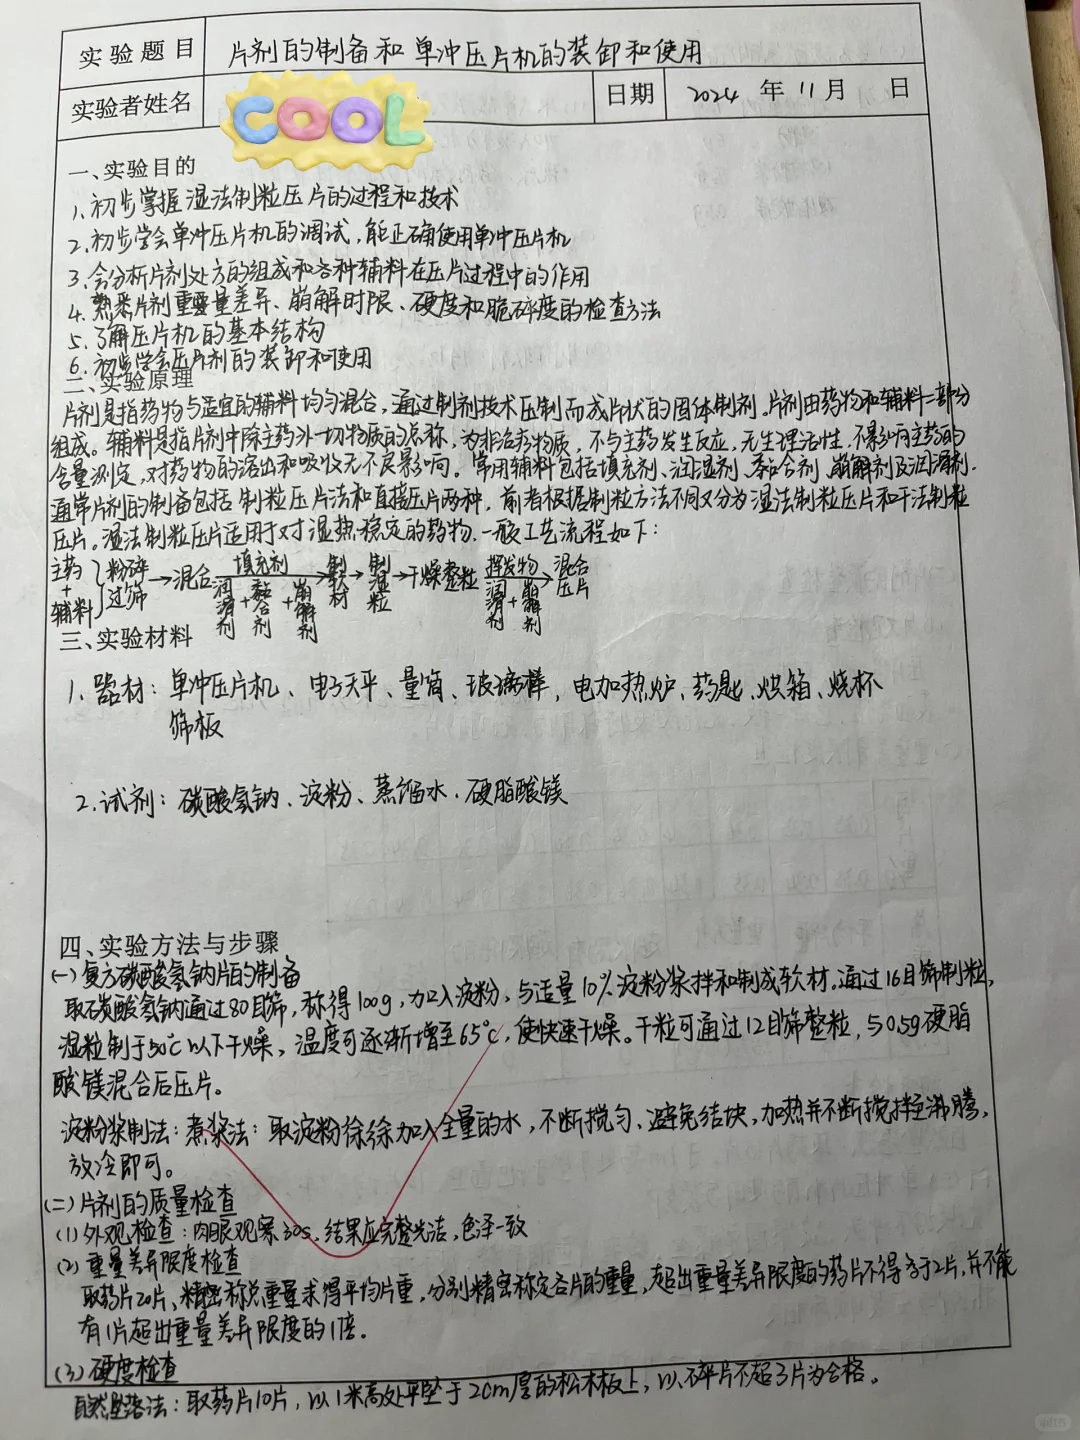 实验题目 片剂的制备和单冲压片机的装卸和使用
实验者姓名 COOL 日期 2024 年 11 月 日
一、实验目的
1、初步掌握湿法制粒压片的过程和技术
2、初步学会单冲压片机的调试，能正确使用单冲压片机
3、会分析片剂处方的组成和各种辅料在压片过程中的作用
4、熟悉片剂重量差异、崩解时限、硬度和脆碎度的检查方法
5、了解压片机的基本结构
6、初步学会压片剂的装卸和使用
二、实验原理
片剂是指药物与适宜的辅料均匀混合，通过制剂技术压制而成片状的固体制剂。片剂由药物和辅料二部分
组成。辅料是指片剂中除主药外一切物质的总称，为非治疗物质，不与主药发生反应，无生理活性，不影响主药的
含量测定，对药物的溶出和吸收无不良影响。常用辅料包括填充剂、润湿剂、黏合剂、崩解剂及润滑剂.
通常片剂的制备包括制粒压片法和直接压片两种，前者根据制粒方法不同又分为湿法制粒压片和干法制粒
压片。湿法制粒压片适用于对湿热稳定的药物.一般工艺流程如下：
主药+辅料 粉碎 过筛 → 混合 填充剂 润滑剂+黏合剂+崩解剂 → 制软材 → 制湿粒 → 干燥整粒 挥发物 润滑剂+崩解剂 → 混合压片
三、实验材料
1. 器材：单冲压片机、电子天平、量筒、玻璃棒，电加热炉、药匙、烘箱、烧杯
筛板
2.试剂：碳酸氢钠、淀粉、蒸馏水、硬脂酸镁
四、实验方法与步骤
(一)复方碳酸氢钠片的制备
取碳酸氢钠通过80目筛，称得100g，加入淀粉，与适量10%淀粉浆拌和制成软材。通过16目筛制粒，
湿粒制于50℃以下干燥，温度可逐渐增至65℃，使快速干燥。干粒可通过12目筛整粒，与0.5g硬脂
酸镁混合后压片。
淀粉浆制法：煮浆法：取淀粉徐徐加入全量的水，不断搅匀、避免结块，加热并不断搅拌至沸腾，
放冷即可。
(二)片剂的质量检查
(1)外观检查：肉眼观察30s，结果应完整光洁，色泽一致
(2)重量差异限度检查
取药片20片、精密称总重量求得平均片重，分别精密称定各片的重量，超出重量差异限度的药片不得多于2片，并不能
有1片超出重量差异限度的1倍.
(3)硬度检查
自然坠落法：取药片10片，以1米高处平坠于2cm厚的松木板上，以碎片不超3片为合格。